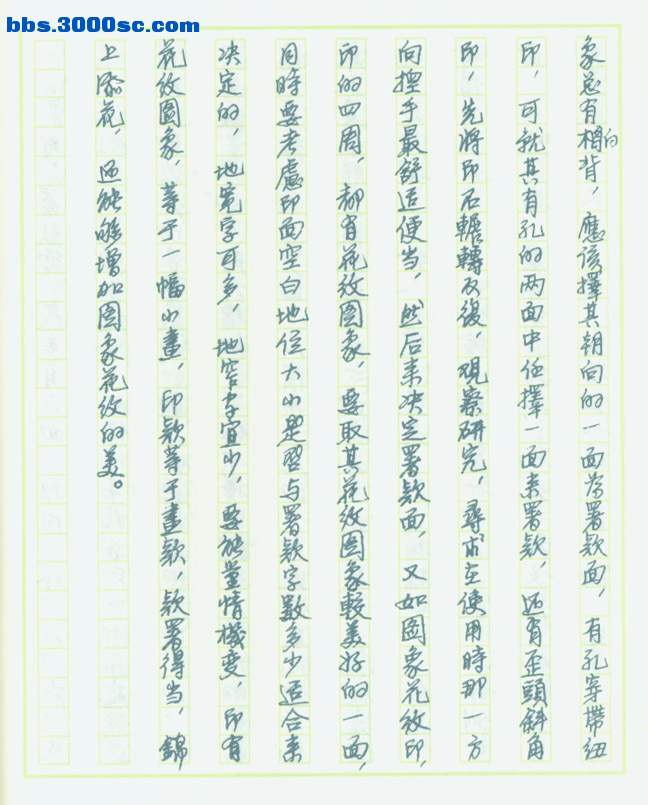 bbs.3000sc.com
象总有相的背，應該擇其朝向的一面为署款面，有孔穿带纽
印，可就其有孔的两面中任擇一面来署款，还有歪頭斜角
印，先将印石輾轉反復，观察研究，尋求在使用時那一方
向握手最舒适便当，然后来决定署款面，又如图象花纹印，
印的四周，都有花纹图象，要取其花纹图象較美好的一面，
同時要考慮印面空白地位大小是否与署款字數多少适合来
决定的，地宽字可多，地窄字宜少，要能量情機变，印有
花纹图象，等于一幅小畫，印款等于畫款，款署得当，錦
上添花，还能够增加图象花纹的美。